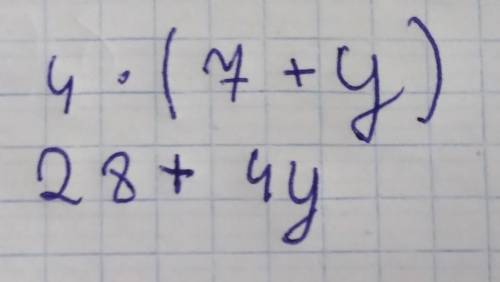 4 · ( 7 + y )
28 + 4y